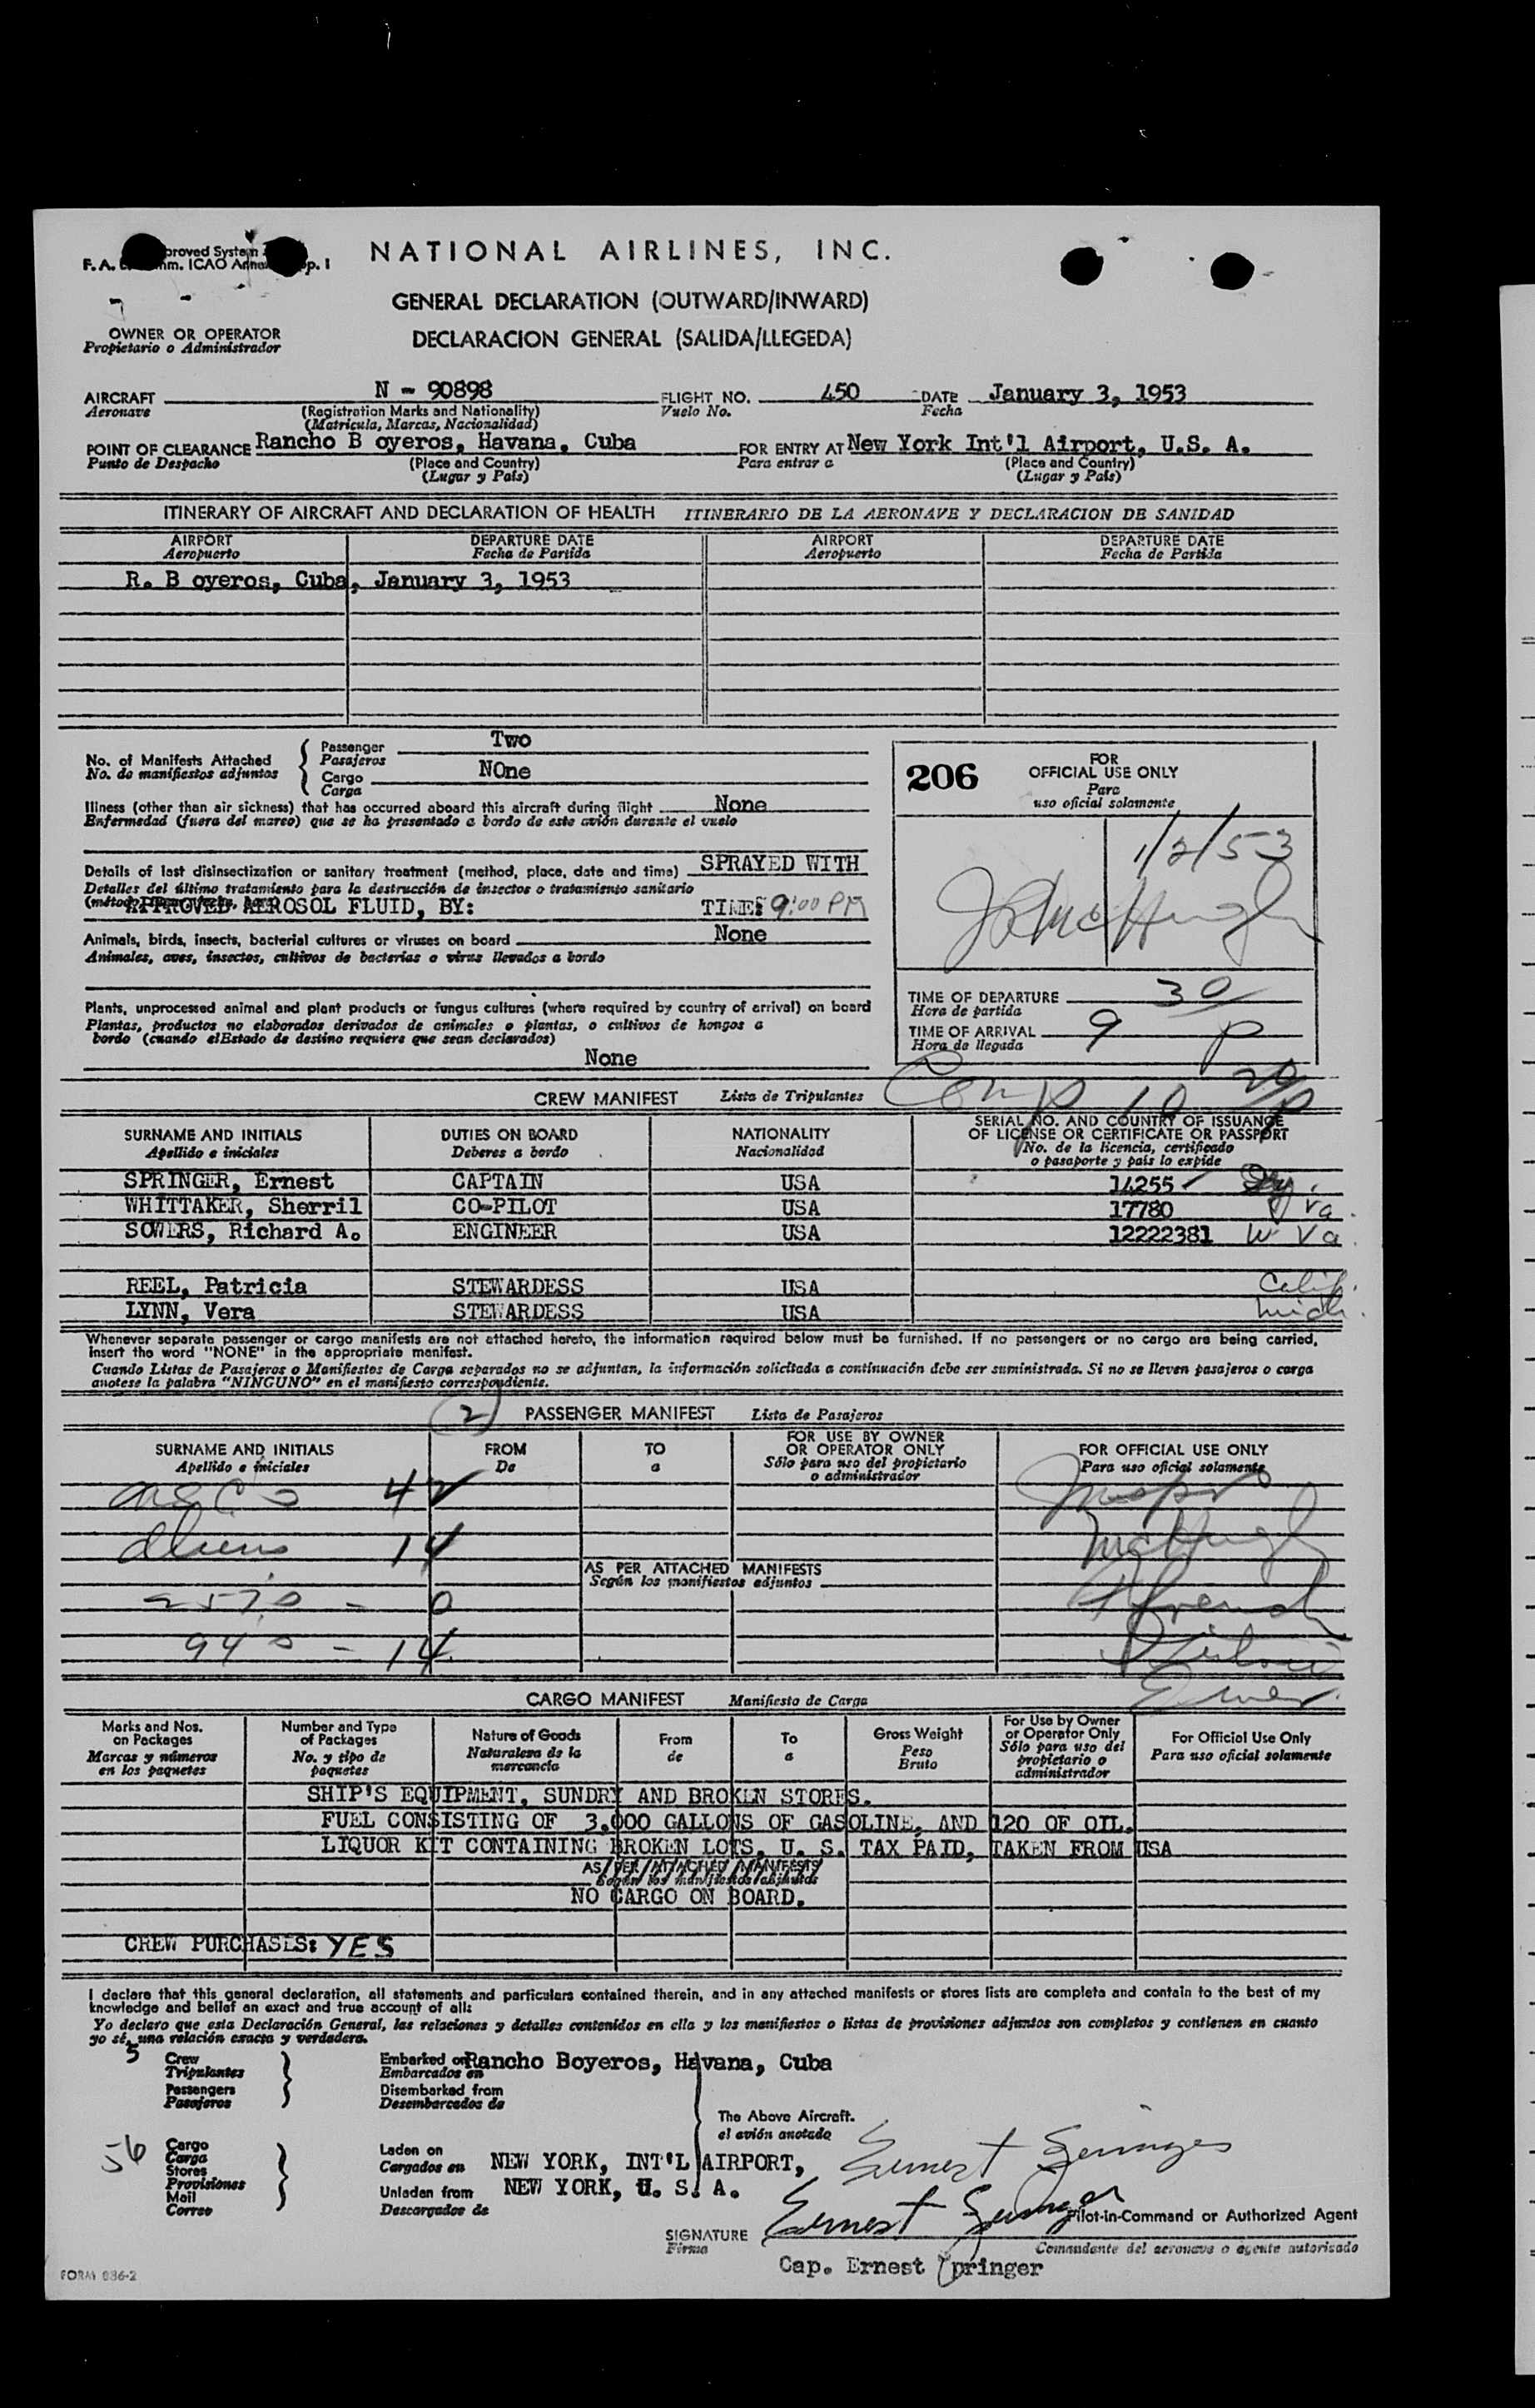 NATIONAL AIRLINES, INC.
GENERAL DECLARATION (OUTWARD/INWARD)
DECLARACION GENERAL (SALIDA/LLEGEDA)
OWNER OR OPERATOR
Propietario o Administrador
AIRCRAFT N - 90898 FLIGHT NO. 450 DATE January 3, 1953
Aeronave (Registration Marks and Nationality) Vuelo No. Fecha
(Matricula, Marcas, Nacionalidad)
POINT OF CLEARANCE Rancho B oyeros, Havana, Cuba FOR ENTRY AT New York Int'l Airport, U.S. A.
Punto de Despacho (Place and Country) Para entrar a (Place and Country)
(Lugar y País) (Lugar y País)
ITINERARY OF AIRCRAFT AND DECLARATION OF HEALTH ITINERARIO DE LA AERONAVE Y DECLARACION DE SANIDAD
AIRPORT DEPARTURE DATE AIRPORT DEPARTURE DATE
Aeropuerto Fecha de Partida Aeropuerto Fecha de Partida
R. B oyeros, Cuba, January 3, 1953
No. of Manifests Attached Passenger Two
No. de manifiestos adjuntos Pasajeros
Cargo NOne
Carga
206 FOR
OFFICIAL USE ONLY
Para
uso oficial solamente
Illness (other than air sickness) that has occurred aboard this aircraft during flight None
Enfermedad (fuera del mareo) que se ha presentado a bordo de este avión durante el vuelo
1/2/53
Details of last disinsectization or sanitary treatment (method, place, date and time) SPRAYED WITH
Detalles del último tratamiento para la destrucción de insectos o tratamiento sanitario
APPROVED AEROSOL FLUID, BY: TIME: 9:00 PM
Animals, birds, insects, bacterial cultures or viruses on board None
Animales, aves, insectos, cultivos de bacterias o virus llevados a bordo
Plants, unprocessed animal and plant products or fungus cultures (where required by country of arrival) on board
Plantas, productos no elaborados derivados de animales o plantas, o cultivos de hongos a
bordo (cuando elEstado de destino requiere que sean declarados)
None
TIME OF DEPARTURE
Hora de partida
TIME OF ARRIVAL 9 30 P
Hora de llegada
Comp 10 20 P
CREW MANIFEST Lista de Tripulantes
SURNAME AND INITIALS DUTIES ON BOARD NATIONALITY SERIAL NO. AND COUNTRY OF ISSUANCE
OF LICENSE OR CERTIFICATE OR PASSPORT
Apellido e iniciales Deberes a bordo Nacionalidad No. de la licencia, certificado
o pasaporte y país lo expide
SPRINGER, Ernest CAPTAIN USA 14255
WHITTAKER, Sherril CO-PILOT USA 17780 Va.
SOWERS, Richard A. ENGINEER USA 12222381 W Va.
REEL, Patricia STEWARDESS USA Calif.
LYNN, Vera STEWARDESS USA Mich.
Whenever separate passenger or cargo manifests are not attached hereto, the information required below must be furnished. If no passengers or no cargo are being carried,
insert the word "NONE" in the appropriate manifest.
Cuando Listas de Pasajeros o Manifiestos de Carga separados no se adjuntan, la información solicitada a continuación debe ser suministrada. Si no se lleven pasajeros o carga
anotese la palabra "NINGUNO" en el manifiesto correspondiente.
(2) PASSENGER MANIFEST Lista de Pasajeros
SURNAME AND INITIALS FROM TO FOR USE BY OWNER
OR OPERATOR ONLY FOR OFFICIAL USE ONLY
Apellido e iniciales De a Sólo para uso del propietario
o administrador Para uso oficial solamente
42
Aliens 14
AS PER ATTACHED MANIFESTS
Según los manifiestos adjuntos
257s - 0
94s - 14
CARGO MANIFEST Manifiesto de Carga
Marks and Nos.
on Packages
Marcas y números
en los paquetes
Number and Type
of Packages
No. y tipo de
paquetes
Nature of Goods
Naturaleza de la
mercancia
From
de
To
a
Gross Weight
Peso
Bruto
For Use by Owner
or Operator Only
Sólo para uso del
propietario o
administrador
For Official Use Only
Para uso oficial solamente
SHIP'S EQUIPMENT, SUNDRY AND BROKEN STORES.
FUEL CONSISTING OF 3,000 GALLONS OF GASOLINE, AND 120 OF OIL.
LIQUOR KIT CONTAINING BROKEN LOTS, U. S. TAX PAID, TAKEN FROM USA
AS PER ATTACHED MANIFESTS
Según los manifiestos adjuntos
NO CARGO ON BOARD.
CREW PURCHASES: YES
I declare that this general declaration, all statements and particulars contained therein, and in any attached manifests or stores lists are complete and contain to the best of my
knowledge and belief an exact and true account of all:
Yo declaro que esta Declaración General, las relaciones y detalles contenidos en ella y los manifiestos o listas de provisiones adjuntos son completos y contienen en cuanto
yo sé, una relación exacta y verdadera.
5 Crew Embarked on Rancho Boyeros, Havana, Cuba
Tripulantes Embarcados en
Passengers Disembarked from
Pasajeros Desembarcados de
The Above Aircraft.
el avión anotado
56 Cargo
Carga Laden on NEW YORK, INT'L AIRPORT,
Stores Cargados en
Provisiones Unladen from NEW YORK, U. S. A.
Mail Descargados de
Correo
Ernest Springer
SIGNATURE Ernest Springer Pilot-in-Command or Authorized Agent
Firma Comandante del aeronave o agente autorizado
Cap. Ernest Springer
FORM 886-2